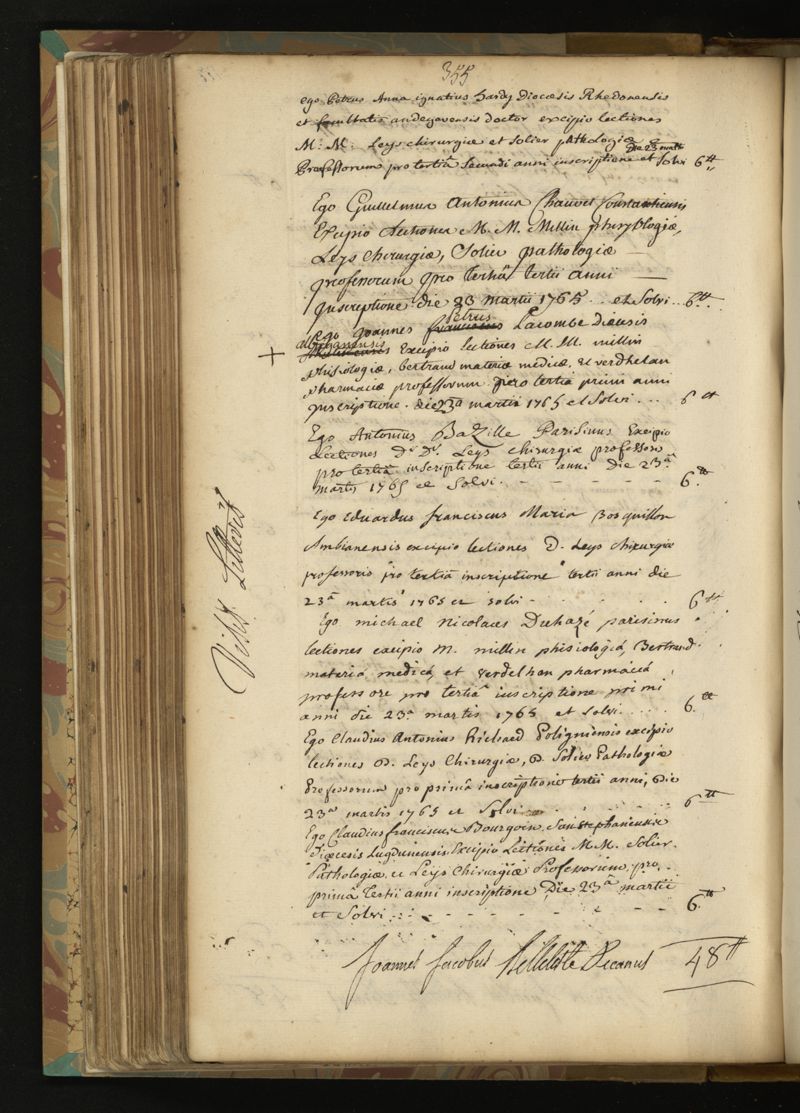 355
ego Petrus Anna ignatius hardy Diocesis Rhedonensis
et facultatis andegavensis doctor excipio lectiones
M. M. Leys chirurgiæ et solier pathologiæ die 23 martii
Professorum pro tertiâ secundi anni inscriptione et solvi 6 ₶
Ego Guillelmus Antonius Chauvet Constantiensis
Excipio Lectiones M. M. Millin physyologiæ,
Leys chirurgiæ, Solier pathologiæ
professorum pro tertiâ tertii anni
inscriptione die 23 martii 1765 .. et Solvi .. 6 ₶
ego Joannes franciscus Petrus Lacombe Diensis
+ Excipio lectiones M. M. millin
phisiologiæ, bertrand materiæ medicæ, et verdhelan
pharmaciæ professorum pro tertia primi anni
inscriptione . die 23ª martii 1765 et Solvi ... 6 ₶
Ego Antonius Bazille Parisinus Excipio
Lectiones D. D. Leys chirurgiæ professoris
pro tertiâ inscriptione tertii anni Die 23ª
martis 1765 et Solvi . - - - - - 6 ₶
Ego Eduardus franciscus Maria Bosquillon
Ambianensis excipio lectiones D. Leys chirurgiæ
professoris pro tertiâ inscriptione tertii anni die
23ª martis 1765 et solvi - - - - 6 ₶
Ego michael Nicolaus Duhazé parisinus
lectiones excipio M. millin phisiologiâ, Bertrand
materiâ medicâ et verdelhan pharmaciâ,
professore pro tertiâ inscriptione primi
anni die 23ª martis 1765 et solvi .... 6 ₶
Ego Claudius Antonius Richard Poligniensis excipio
lectiones D. Leys Chirurgiæ, D. Solier Pathologiæ
Professorum pro primâ inscriptione tertii anni, die
23ª martis 1765 et Solvi - - - - 6 ₶
Ego Claudius franciscus Bourgoin Sanstephaniensis
Diœcesis Lugdunensis Excipio Lectiones M. M. Solier
Pathologiæ et Leys Chirurgiæ Professorum pro
primâ tertii anni inscriptione Die 23ª martii
et Solvi - - - - - 6 ₶
Joannes Jacobus Decanus 48 ₶